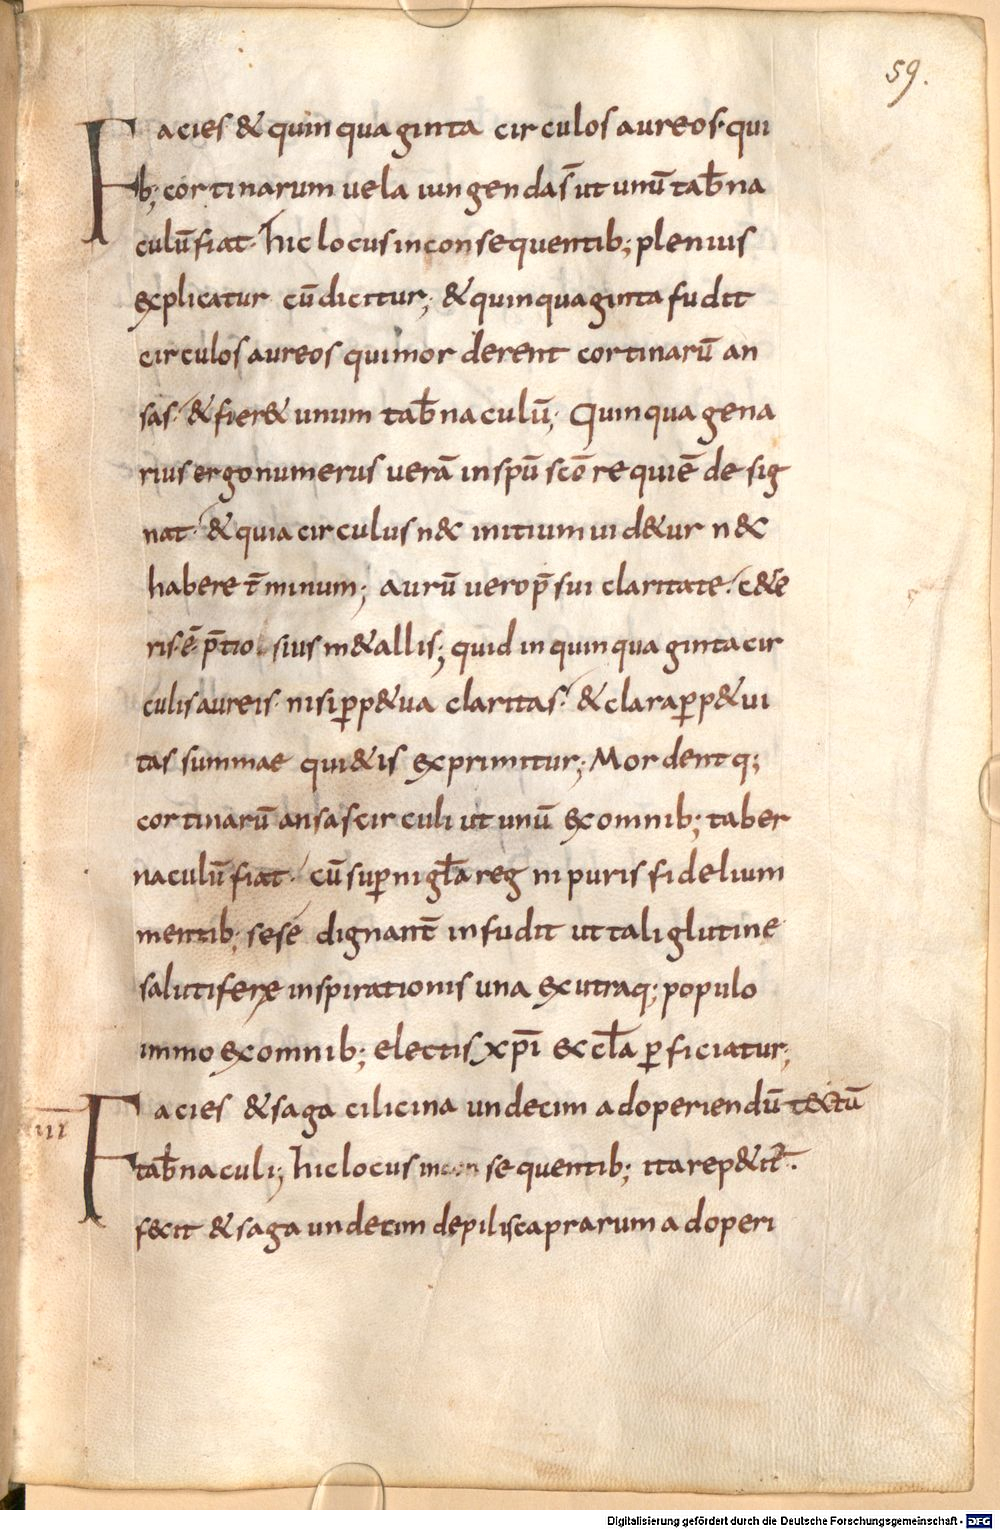 59.
Facies & quinquaginta circulos aureos· qui
b; cortinarum uela iungendas ut unū tab̄na
culū fiat· hic locus in consequentib; plenius
explicatur cū dicitur; & quinquaginta fudit
circulos aureos qui morderent cortinarū an
sas· & fier& unum tab̄naculū; Quinquagena
rius ergo numerus uerā in sp̄u sc̄o requiē desig
nat· & quia circulus n&c initium uid&ur n&c
habere t̄minum; aurū uero p̄ sui claritate· c&e
ris· ē p̄tiosius m&allis; quid in quinquaginta cir
culis aureis· nisi ꝑp&ua claritas· & clara ꝑp&ui
tas summae qui&is exprimitur; Mordent q;
cortinarū ansas circuli ut unū ex omnib; taber
naculū fiat· cū suꝑni gl̄a reg ni puris fidelium
mentib; sese dignant̄ infudit ut tali glutine
salutiferae inspirationis una ex utraq; populo
immo ex omnib; electis xp̄i eccl̄a ꝑficiatur;
iii
Facies & saga cilicina undecim adoperiendū tectū
tab̄naculi; hic locus in consequentib; ita rep&it̄·
fecit & saga undecim de pilis caprarum adoperi
Digitalisierung gefördert durch die Deutsche Forschungsgemeinschaft - DFG